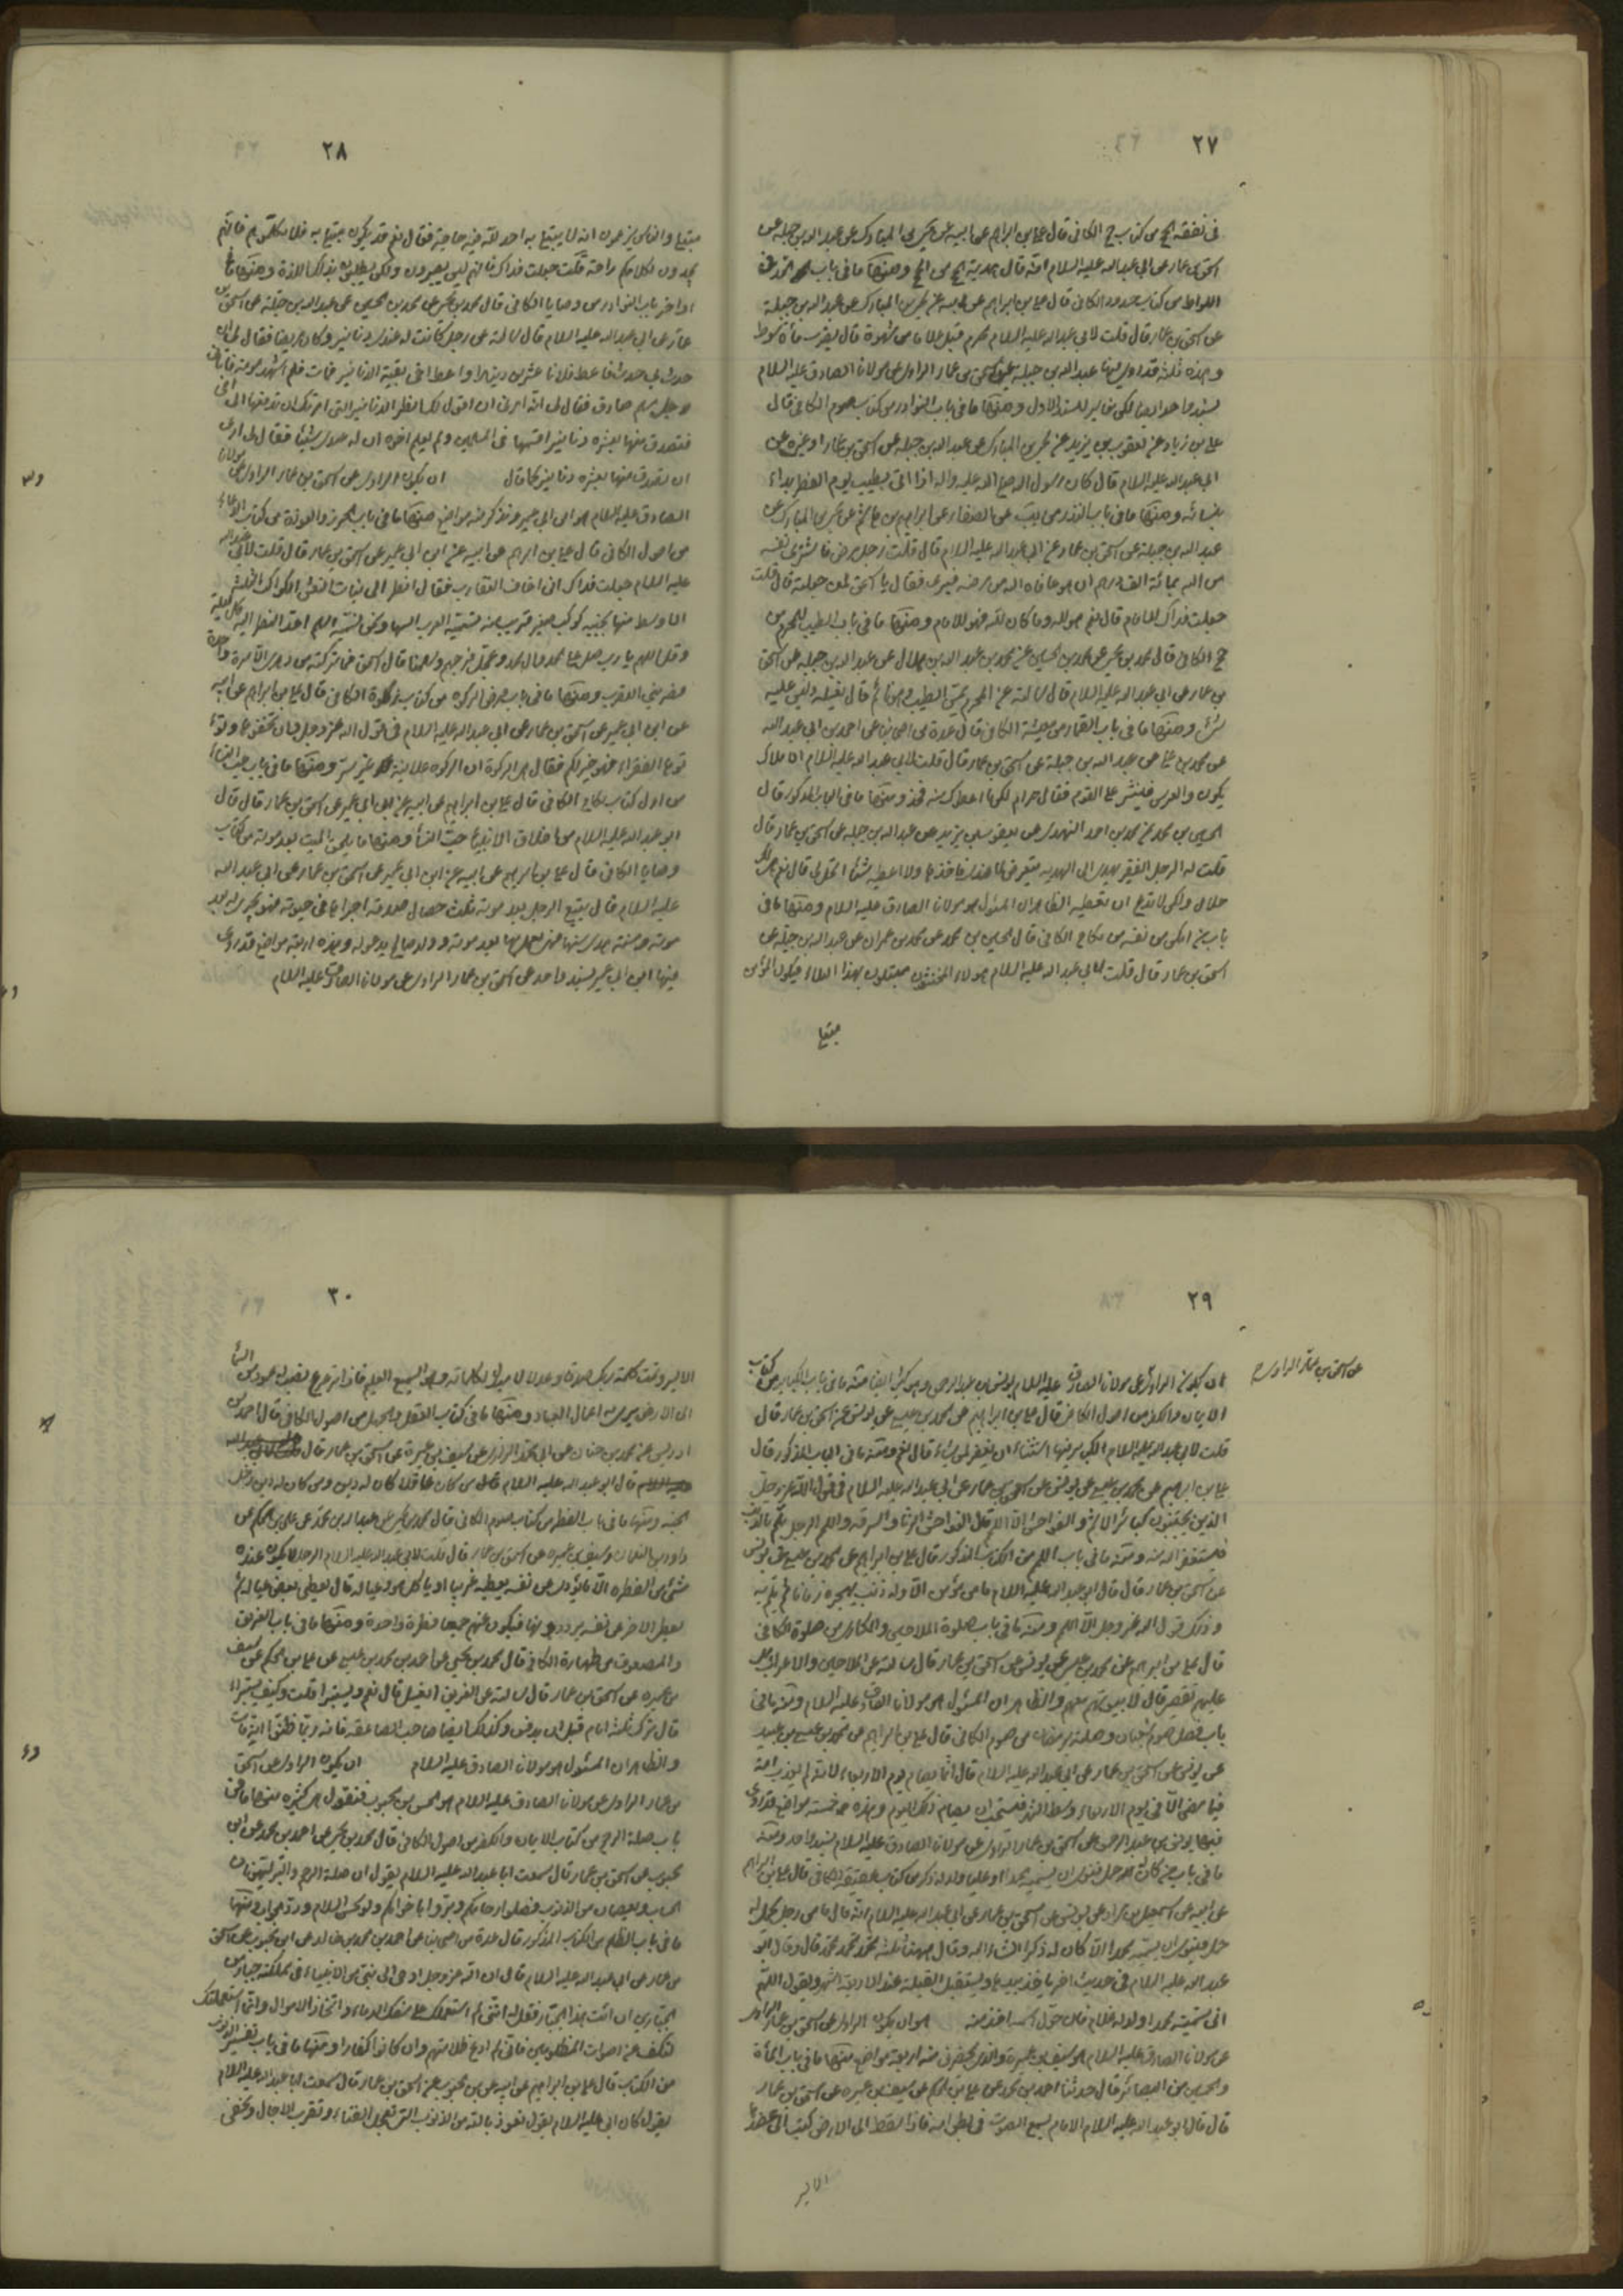 ٢٧
في نفقة الحج من كتاب حج الكافي قال علي بن ابراهيم عن ابيه عن يحيى بن المبارك عن عبد الله بن جبلة عن
اسحق بن عمار عن ابي عبد الله عليه السلام انه قال هدية الحج من الحج ومنها ما في باب الحد في
اللواط من كتاب حدود الكافي قال علي بن ابراهيم عن ابيه عن يحيى بن المبارك عن عبد الله بن جبلة
عن اسحق بن عمار قال قلت لابي عبد الله عليه السلام محرم قبل غلاما من شهوة قال يضرب مأة سوط
وهذه ثلثة قد روى فيها عبد الله بن جبلة عن اسحق بن عمار الراوي عن مولانا الصادق عليه السلام
بسند واحد ايضا لكن مغاير للسند الاول ومنها ما في باب النوادر من كتاب صوم الكافي قال
علي بن زياد عن يعقوب بن يزيد عن يحيى بن المبارك عن عبد الله بن جبلة عن اسحق بن عمار او غيره عن
ابي عبد الله عليه السلام قال كان رسول الله صلى الله عليه واله اذا اتى بطيب يوم الفطر بداء
بنسائه ومنها ما في باب النذر من عن الصفار عن ابراهيم بن هاشم عن يحيى بن المبارك عن
عبد الله بن جبلة عن اسحق بن عمار عن ابي عبد الله عليه السلام قال قلت رجل مرض فاشترى نفسه
من الله بمائة الف درهم ان هو عافاه الله من مرضه فبرئ فقال يا اسحق لمن جعلته قال قلت
جعلت فداك للامام قال نعم هو لله وما كان لله فهو للامام ومنها ما في باب الطيب للمحرم من
حج الكافي قال محمد بن يحيى عن محمد بن الحسين عن محمد بن عبد الله بن هلال عن عبد الله بن جبلة عن اسحق
بن عمار عن ابي عبد الله عليه السلام قال سالته عن المحرم يمس الطيب وهو نائم قال يغسله وليس عليه
شئ ومنها ما في باب القمار من معيشة الكافي قال عدة من اصحابنا عن احمد بن ابي عبد الله
عن محمد بن علي عن عبد الله بن جبلة عن اسحق بن عمار قال قلت لابي عبد الله عليه السلام الاملاك
يكون والعرس فينثر على القوم فقال حرام لكن ما اعطوك منه فخذ ومنها ما في الباب المذكور قال
الحسين بن محمد عن محمد بن احمد النهدي عن يعقوب بن يزيد عن عبد الله بن جبلة عن اسحق بن عمار قال
قلت له الرجل الفقير يهدي الى الهدية يتعرض لما عندي فاخذها ولا اعطيه شيئا ايحل لي قال نعم هي لك
حلال ولكن لا تدع ان تعطيه الظاهر ان المسئول هو مولانا الصادق عليه السلام ومنها ما في
باب من امكن من نفسه من نكاح الكافي قال الحسين بن محمد عن محمد بن عمران عن عبد الله بن جبلة عن
اسحق بن عمار قال قلت لابي عبد الله عليه السلام هؤلاء المخنثون مبتلون بهذا البلاء فيكون المؤمن
مبتلى
٢٨
مبتلى والناس يزعمون انه لا يبتلى به احد لله فيه حاجة فقال نعم قد يكون مبتلى به فلا تكلموهم فانهم
يجدون لكلامكم راحة قلت جعلت فداك فانهم ليس يصبرون ولكن يطلبون بذلك اللذة ومنها ما في
اواخر باب النوادر من وصايا الكافي قال محمد بن يحيى عن محمد بن يحيى عن عبد الله بن جبلة عن اسحق بن
عمار عن ابي عبد الله عليه السلام قال سالته عن رجل كانت له عندي دنانير وكان مريضا فقال لي ان
حدث بي حدث فاعط فلانا عشرين دينارا واعط اخي بقية الدنانير فمات فلم اشهد موته فاتاني
رجل مسلم صادق فقال لي انه امرني ان اقول لك انظر الدنانير التي امرتك ان تدفعها الى اخي
فتصدق منها بعشرة دنانير اقسمها في المسلمين ولم يعلم اخوه ان له عندي شيئا فقال لي ارى
ان تصدق منها بعشرة دنانير كما قال ان يكون الراوي عن اسحق بن عمار الراوي عن مولانا
الصادق عليه السلام هو ابن ابي عمير ونذكر منه مواضع منها ما في باب الحرز والعوذة من كتاب الدعاء
من اصول الكافي قال علي بن ابراهيم عن ابيه عن ابن ابي عمير عن اسحق بن عمار قال قلت لابي عبد الله
عليه السلام جعلت فداك اني اخاف العقارب فقال انظر الى بنات النعش الكواكب الثلثة
الاوسط منها بجنبه كوكب صغير قريب منه تسميه العرب السها ونحن نسميه اسلم احد النظر اليه كل ليلة
وقل اللهم يا رب صل على محمد وال محمد وعجل فرجهم وسلمنا قال اسحق فما تركته من دهري الا مرة واحدة
فضربتني العقرب ومنها ما في باب فرض الزكوة من كتاب زكوة الكافي قال علي بن ابراهيم عن ابيه
عن ابن ابي عمير عن اسحق بن عمار عن ابي عبد الله عليه السلام في قول الله عز وجل وان تخفوها وتؤ
توها الفقراء فهو خير لكم فقال هي الزكوة ان الزكوة علانية غير سر ومنها ما في باب حب النساء
من اول كتاب نكاح الكافي قال علي بن ابراهيم عن ابيه عن ابن ابي عمير عن اسحق بن عمار قال قال
ابو عبد الله عليه السلام من اخلاق الانبياء حب النساء ومنها ما يلحق الميت بعد موته من كتاب
وصايا الكافي قال علي بن ابراهيم عن ابيه عن ابن ابي عمير عن اسحق بن عمار عن ابي عبد الله
عليه السلام قال يتبع الرجل بعد موته ثلث خصال صدقة اجراها في حيوته فهي تجري له بعد
موته وسنة هدى سنها فهي يعمل بها بعد موته وولد صالح يدعو له وهذه اربعة مواضع قد روى
فيها ابن ابي عمير بسند واحد عن اسحق بن عمار الراوي عن مولانا الصادق عليه السلام
٢٩
ان يكون الراوي عن مولانا الصادق عليه السلام يونس بن عبد الرحمن وهو كثير ايضا منه ما في باب الكباير من كتاب
عن اسحق بن عمار الراوي
الايمان والكفر من اصول الكافي قال علي بن ابراهيم عن محمد بن عيسى عن يونس عن اسحق بن عمار قال
قلت لابي عبد الله عليه السلام الكباير فيها استثناء ان يغفر لمن يشاء قال نعم ومنه ما في الباب المذكور قال
علي بن ابراهيم عن محمد بن عيسى عن يونس عن اسحق بن عمار عن ابي عبد الله عليه السلام في قول الله عز وجل
الذين يجتنبون كبائر الاثم والفواحش الا اللمم قال الفواحش الزنا والسرقة واللمم الرجل يلم بالذنب
فيستغفر الله منه ومنه ما في باب اللمم من الكتاب المذكور قال علي بن ابراهيم عن محمد بن عيسى عن يونس
عن اسحق بن عمار قال قال ابو عبد الله عليه السلام ما من مؤمن الا وله ذنب يهجره زمانا ثم يلم به
وذلك قول الله عز وجل الا اللمم ومنه ما في باب صلوة الملاحين والمكارين من صلوة الكافي
قال علي بن ابراهيم عن محمد بن عيسى عن يونس عن اسحق بن عمار قال سالته عن الملاحين والاعراب هل
عليهم تقصير قال لا بيوتهم معهم والظاهر ان المسئول هو مولانا الصادق عليه السلام ومنه ما في
باب فضل صوم شعبان وصلته برمضان من صوم الكافي قال علي بن ابراهيم عن محمد بن عيسى بن عبيد
عن يونس عن اسحق بن عمار عن ابي عبد الله عليه السلام قال انما يصام يوم الاربعاء لانه لم يعذب امة
فيما مضى الا في يوم الاربعاء وسط الشهر فيستحب ان يصام ذلك اليوم وهذه خمسة مواضع قد روى
فيها يونس بن عبد الرحمن عن اسحق بن عمار الراوي عن مولانا الصادق عليه السلام بسند واحد ومنه
ما في باب من كان له حمل فنوى ان يسميه محمدا او عليا ولد له ذكر من كتاب عقيقة الكافي قال علي بن ابراهيم
عن ابيه عن اسمعيل بن مرار عن يونس عن اسحق بن عمار عن ابي عبد الله عليه السلام انه قال ما من رجل يحمل له
حمل فينوي ان يسميه محمدا الا كان له ذكرا انشاء الله وقال ههنا ثلثة محمد محمد محمد قال وقال ابو
عبد الله عليه السلام في حديث اخر ياخذ بيدها ويستقبل القبلة عند الاربعة اشهر ويقول اللهم
اني سميته محمدا ولد له غلام فان حول اسمه اخذ منه هو ان يكون الراوي عن اسحق بن عمار الراوي
عن مولانا الصادق عليه السلام هو سيف بن عميرة والذي يحضرني منه اربعة مواضع منها ما في باب المأة
وخمسين من البصائر قال حدثنا احمد بن محمد عن علي بن الحكم عن سيف بن عميرة عن اسحق بن عمار
قال قال ابو عبد الله عليه السلام الامام يسمع الصوت في بطن امه فاذا سقط الى الارض كتب على عضده
الايمن
٣٠
الايمن وتمت كلمة ربك صدقا وعدلا لا مبدل لكلماته وهو السميع العليم فاذا ترعرع نصب له عمود من السماء
الى الارض يرى به اعمال العباد ومنها ما في كتاب العقل والجهل من اصول الكافي قال احمد بن
ادريس عن محمد بن حسان عن ابي محمد الرازي عن سيف بن عميرة عن اسحق بن عمار قال
قال ابو عبد الله عليه السلام قال من كان عاقلا كان له دين ومن كان له دين دخل
الجنة ومنها ما في باب الفطرة من كتاب صوم الكافي قال محمد بن يحيى عن بنان بن محمد عن علي بن الحكم عن
داود بن النعمان وسيف بن عميرة عن اسحق بن عمار قال قلت لابي عبد الله عليه السلام الرجل لا يكون عنده
شئ من الفطرة الا ما يؤدي عن نفسه يعطيه غريبا او ياكل هو وعياله قال يعطي بعض عياله ثم
يعطي الاخر عن نفسه يرددونها فيكون عنهم جميعا فطرة واحدة ومنها ما في باب الغريق
والمصعوق من طهارة الكافي قال محمد بن يحيى عن احمد بن محمد بن عيسى عن علي بن الحكم عن سيف
بن عميرة عن اسحق بن عمار قال سالته عن الغريق ايغسل قال نعم ويستبرا قلت وكيف يستبرا
قال يترك ثلثة ايام قبل ان يدفن وكذلك ايضا صاحب الصاعقة فانه ربما ظنوا انه مات
والظاهر ان المسئول هو مولانا الصادق عليه السلام ان يكون الراوي عن اسحق
بن عمار الراوي عن مولانا الصادق عليه السلام هو الحسن بن محبوب فنقول هو كثيرة منها ما في
باب صلة الرحم من كتاب الايمان والكفر من اصول الكافي قال محمد بن يحيى عن احمد بن محمد عن ابن
محبوب عن اسحق بن عمار قال سمعت ابا عبد الله عليه السلام يقول ان صلة الرحم والبر ليهونان
الحساب ويعصمان من الذنوب فصلوا ارحامكم وبروا باخوانكم ولو بحسن السلام ورد الجواب ومنها
ما في باب الظلم من الكتاب المذكور قال عدة من اصحابنا عن احمد بن محمد بن خالد عن ابن محبوب عن اسحق
بن عمار عن ابي عبد الله عليه السلام قال ان الله عز وجل اوحى الى نبي من الانبياء في مملكة جبار من
الجبارين ان ائت هذا الجبار فقل له انني لم استعملك على سفك الدماء واتخاذ الاموال وانما استعملتك
لتكف عني اصوات المظلومين فاني لم ادع ظلامتهم وان كانوا كفارا ومنها ما في باب تفسير الذنوب
من الكتاب قال علي بن ابراهيم عن ابيه عن ابن محبوب عن اسحق بن عمار قال سمعت ابا عبد الله عليه السلام
يقول كان ابي عليه السلام يقول نعوذ بالله من الذنوب التي تعجل الفناء وتقرب الاجال وتخلى